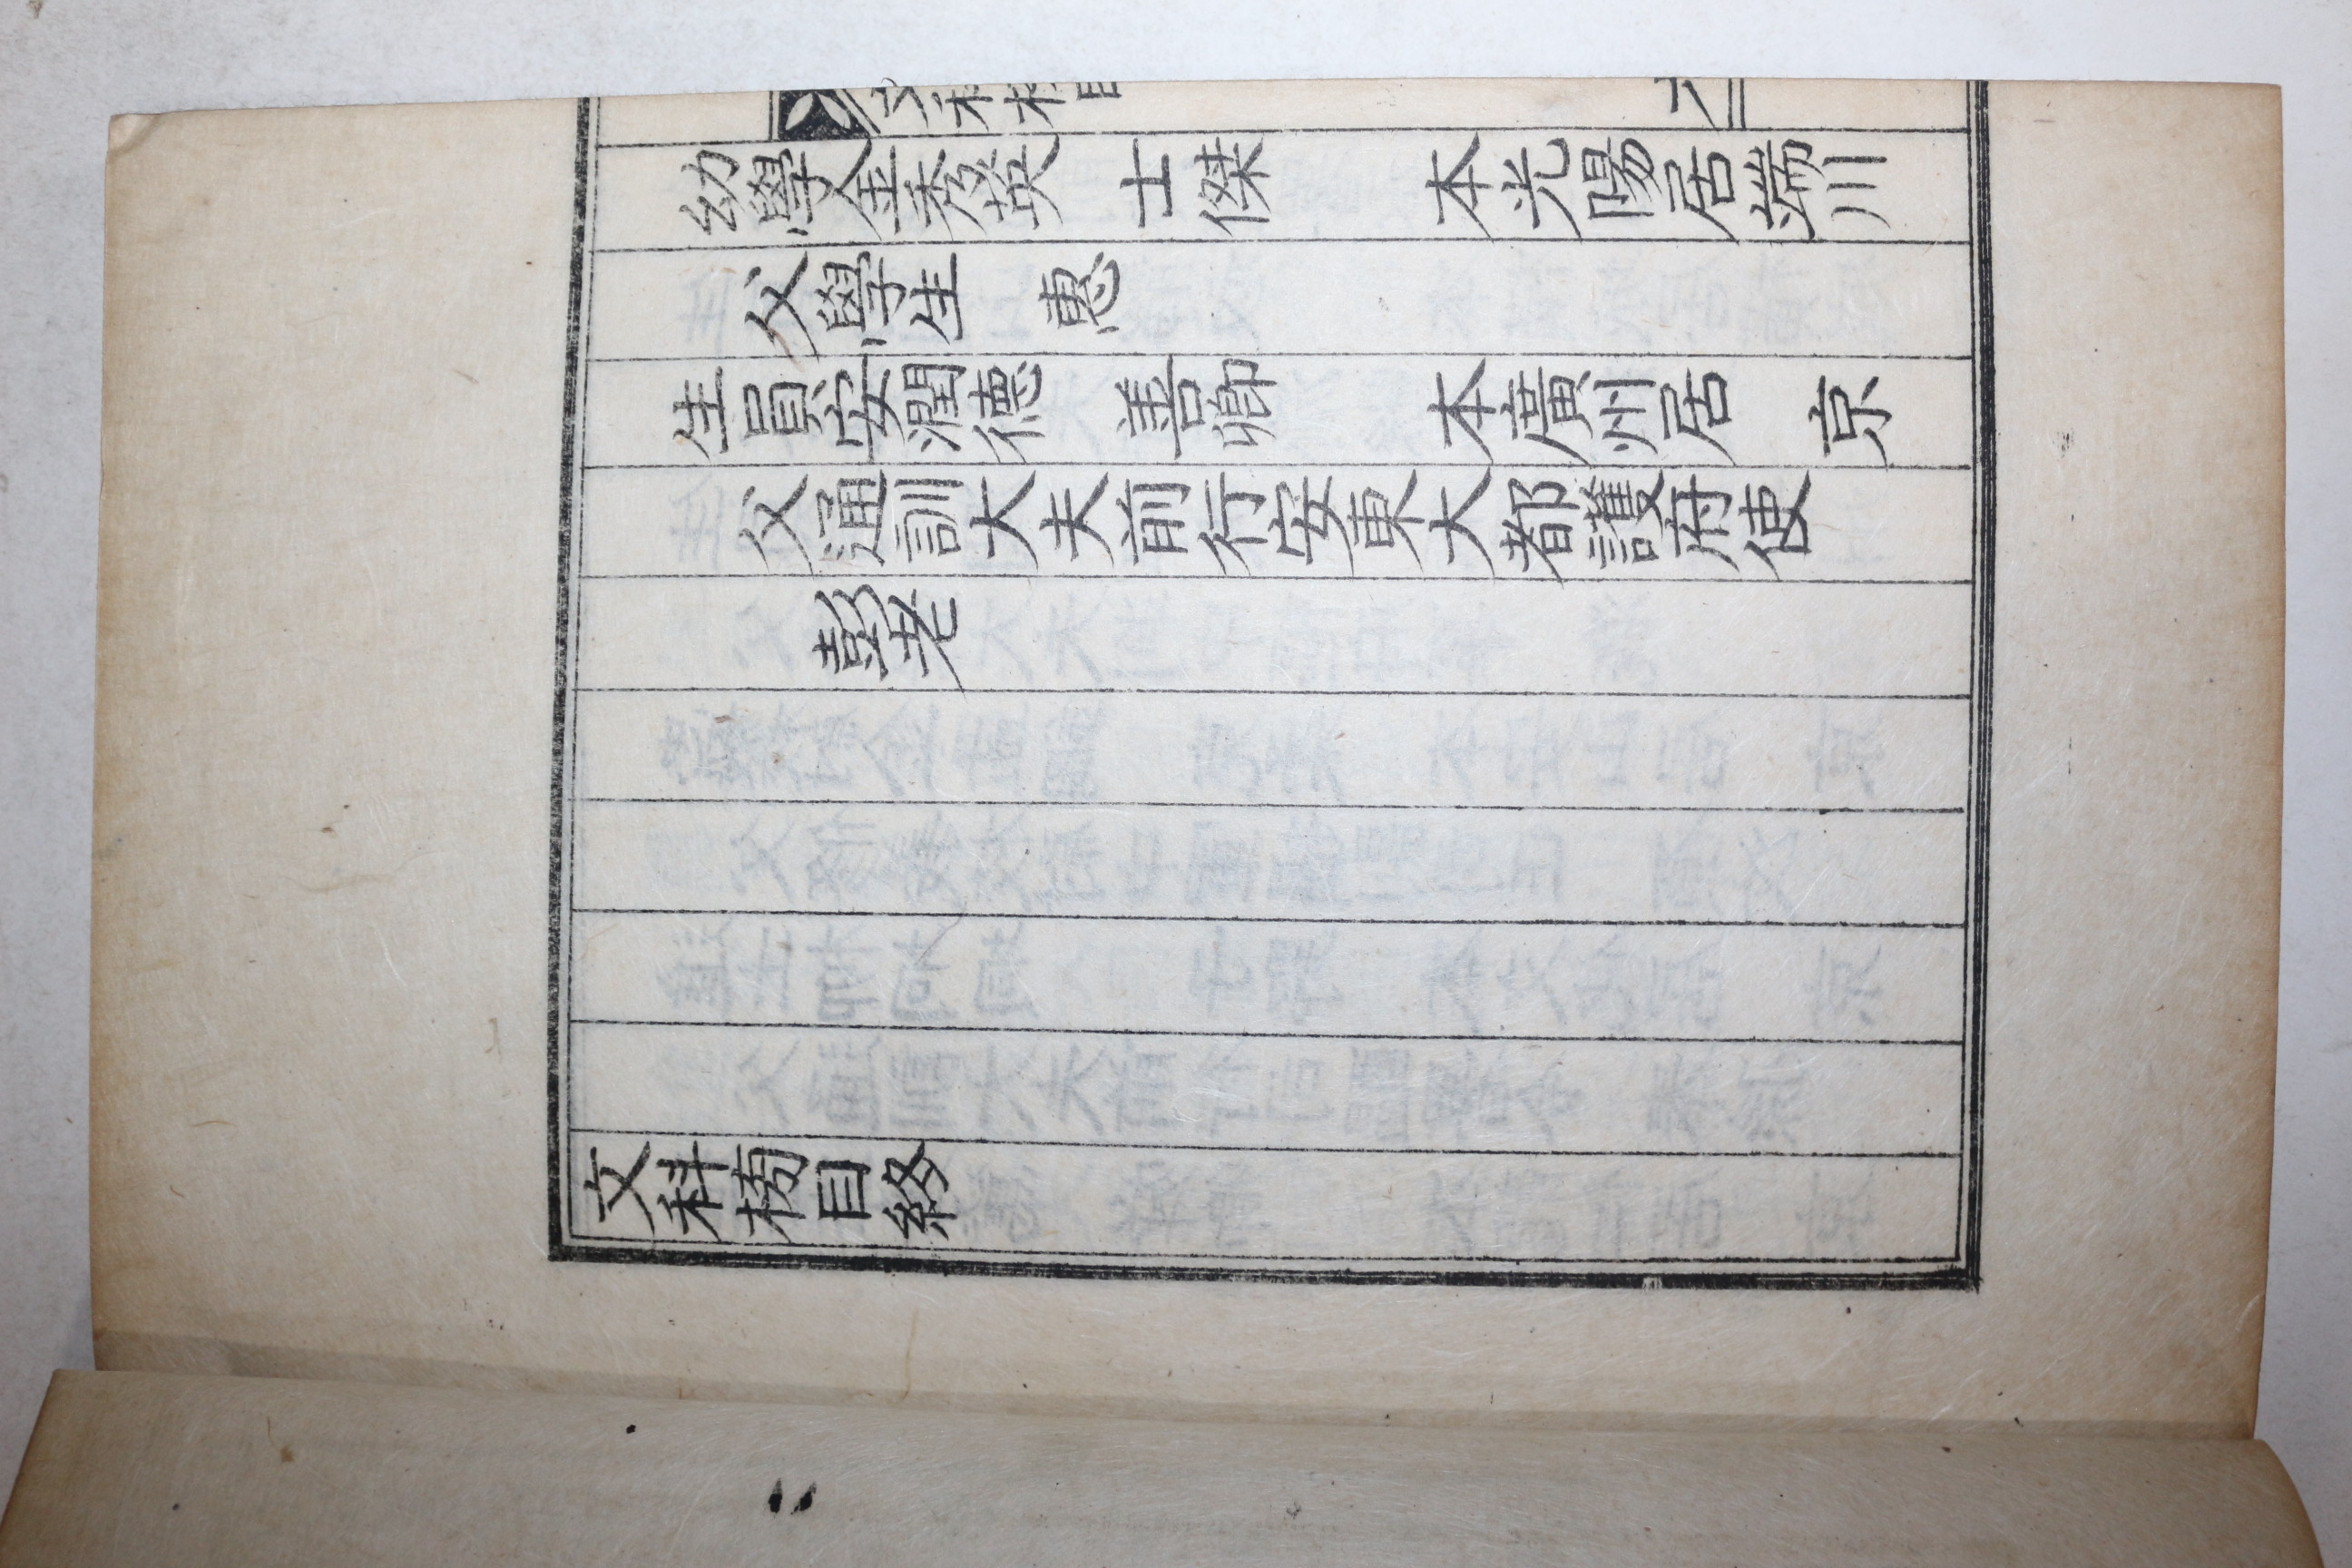 文科榜目
幼學金秀英 士傑 本光陽居端川
父學生 惠
生員安潤德 善卿 本廣州居 京
父通訓大夫前行安東大都護府使
彭老
文科榜目終